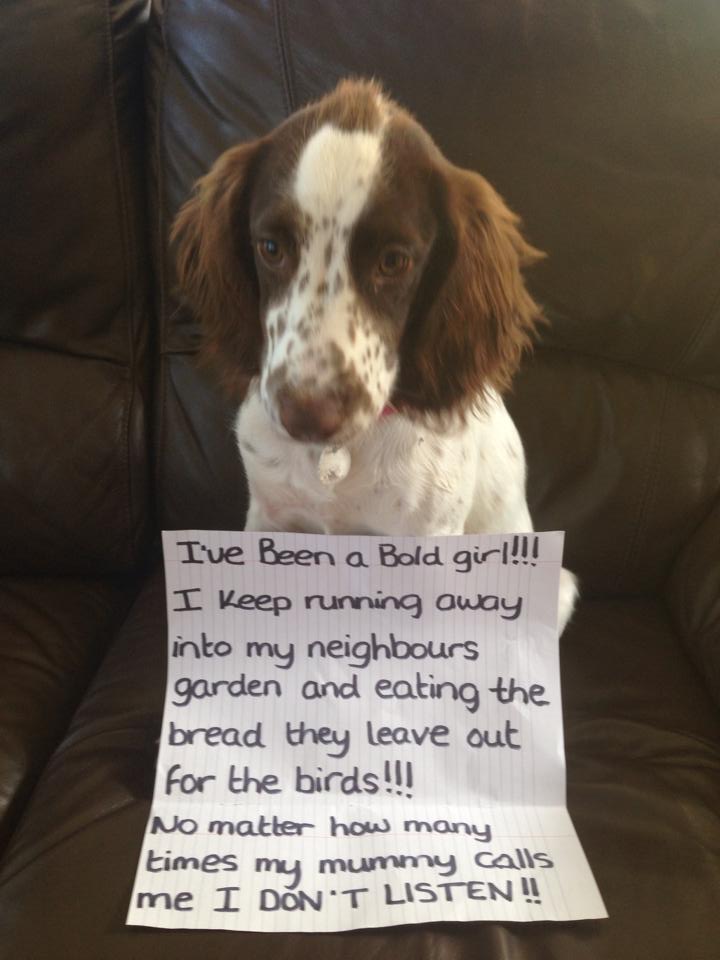 I've Been a Bold girl!!!
I Keep running away
into my neighbours
garden and eating the
bread they leave out
for the birds!!!
No matter how many
times my mummy calls
me I DON'T LISTEN!!